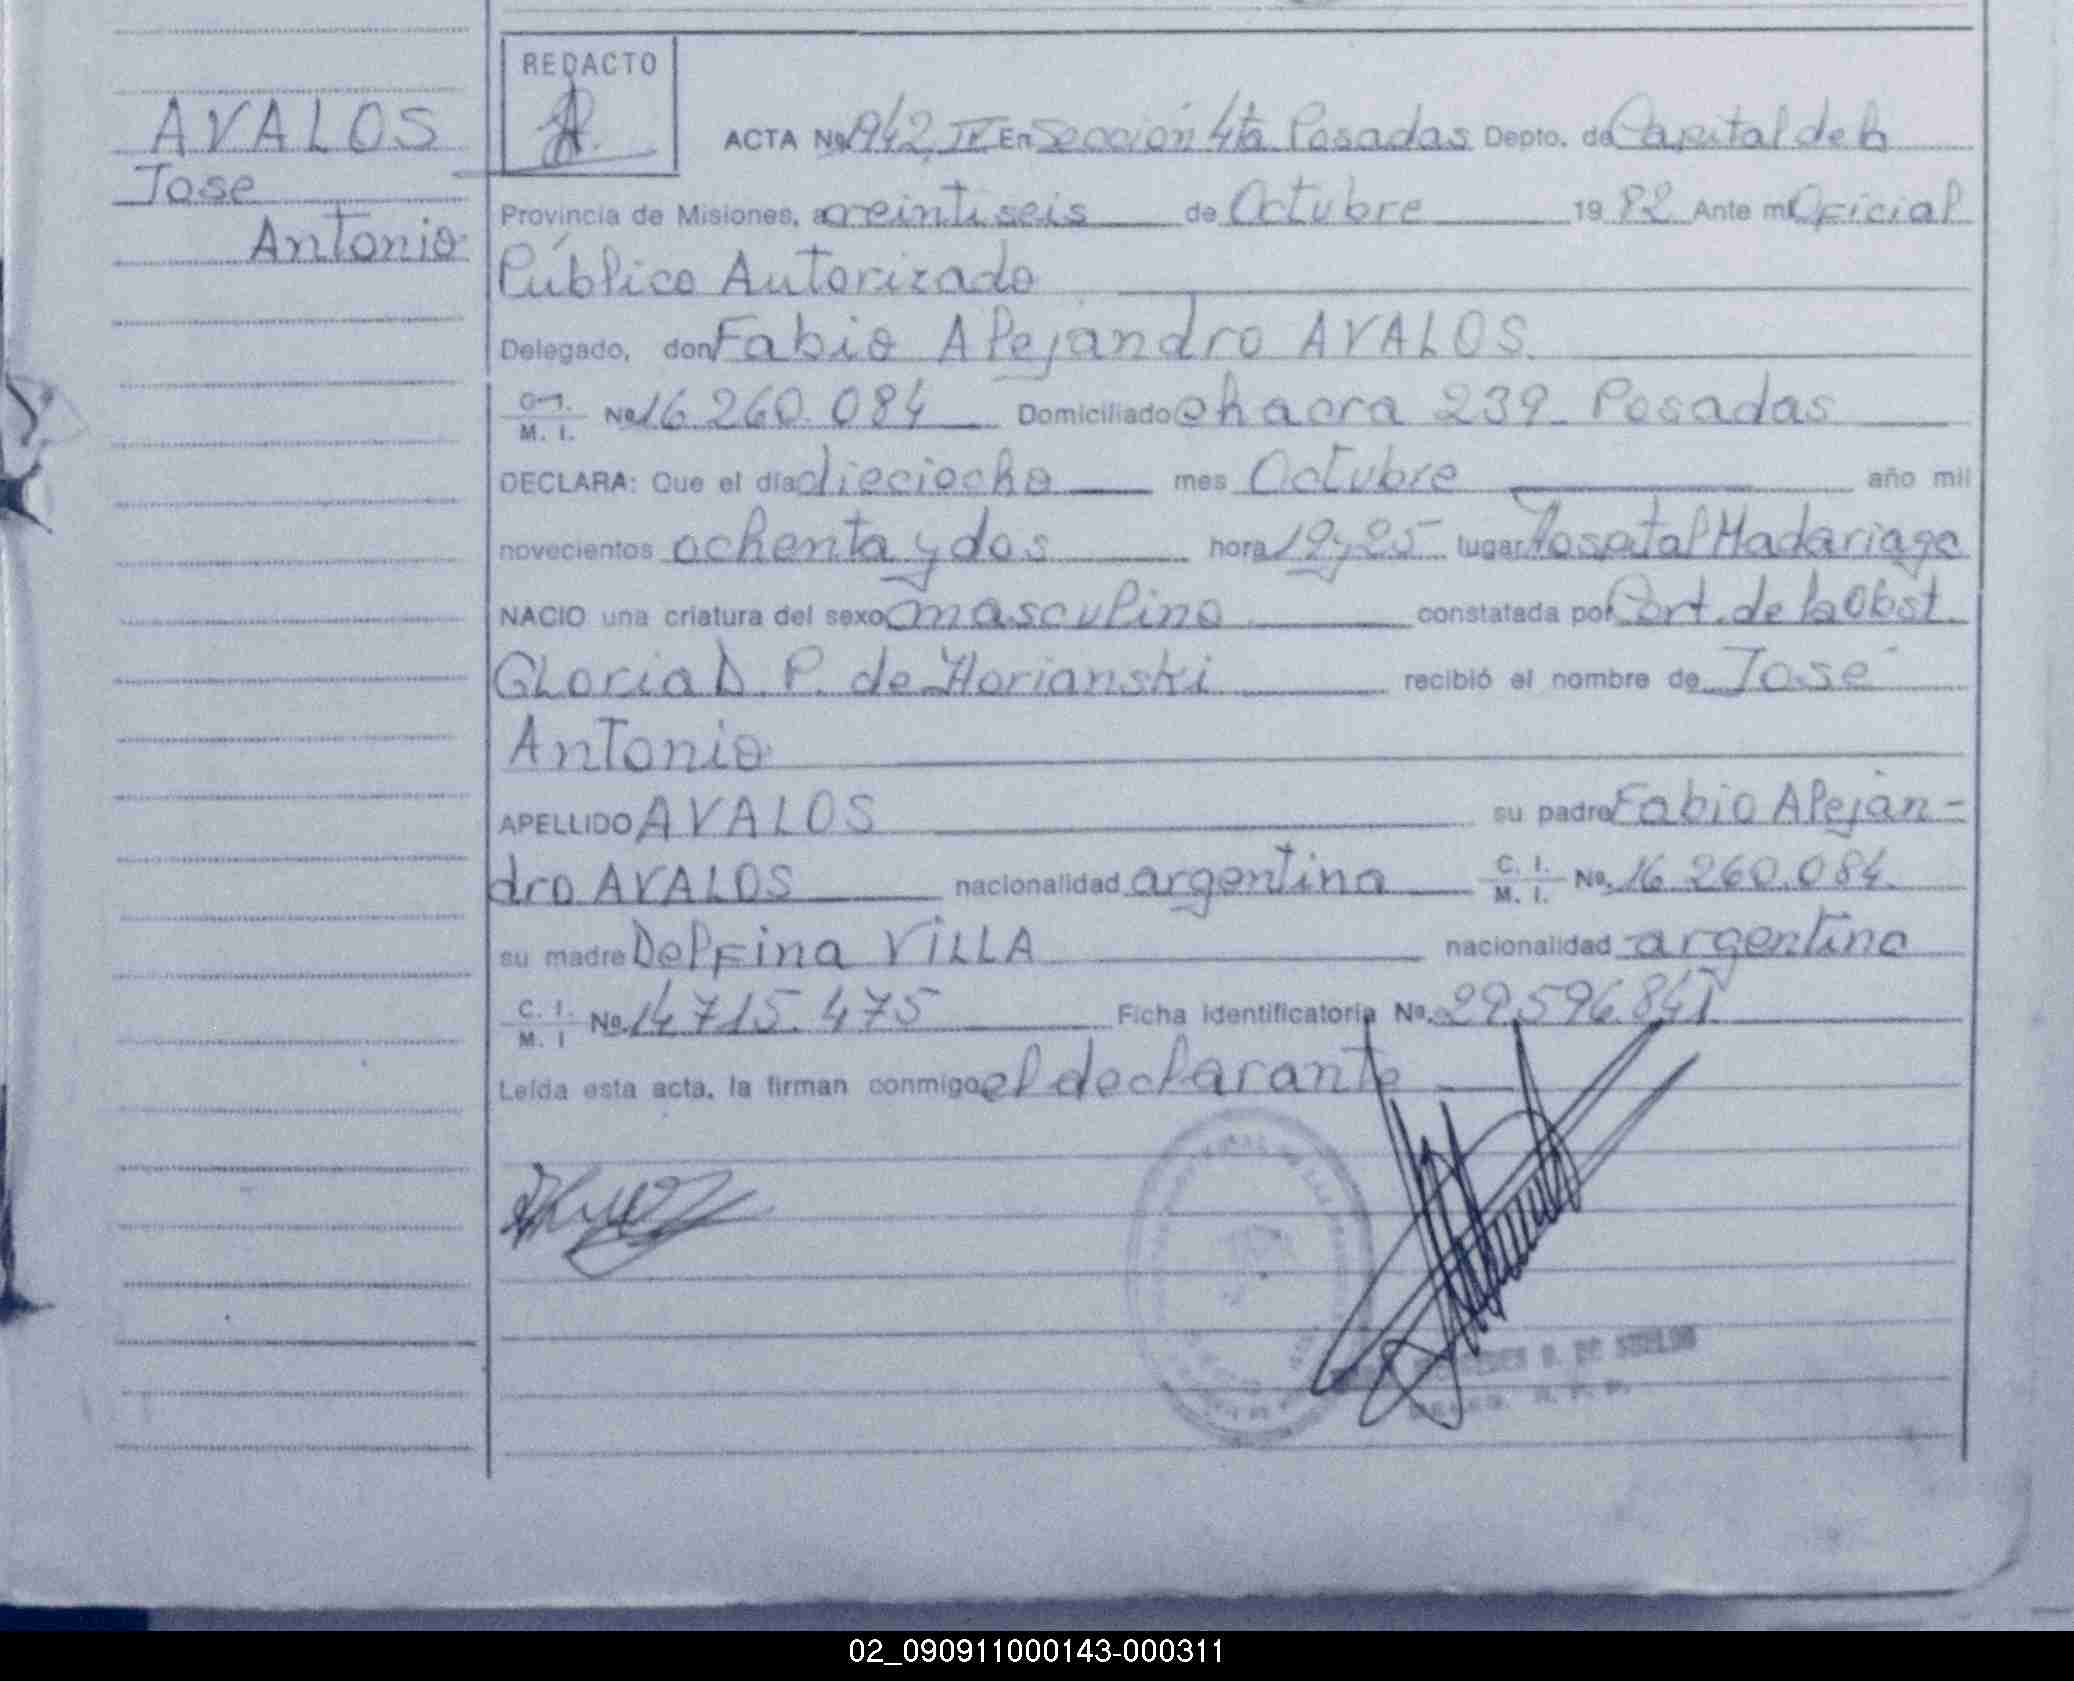 REDACTO
AVALOS
Jose
Antonio
ACTA No 942 IV En Sección 4ta Posadas Depto. de Capital de la
Provincia de Misiones, a veintiseis de Octubre 1982 Ante mi Oficial
Público Autorizado
Delegado, don Fabio Alejandro AVALOS.
C.I. M. I. No 16.260.084 Domiciliado chacra 239 Posadas
DECLARA: Que el día dieciocho mes Octubre año mil
novecientos ochenta y dos hora 19y25 lugar Hospital Madariaga
NACIO una criatura del sexo masculino constatada por Cert. de la Obst.
Gloria D. P. de Horianski recibió el nombre de José
Antonio
APELLIDO AVALOS su padre Fabio Aleján-
dro AVALOS nacionalidad argentina C. I. M. I. No. 16.260.084
su madre Delfina VILLA nacionalidad argentina
C. I. M. I No. 14.715.475 Ficha identificatoria No. 29.596.841
Leída esta acta, la firman conmigo el declarante
02_090911000143-000311